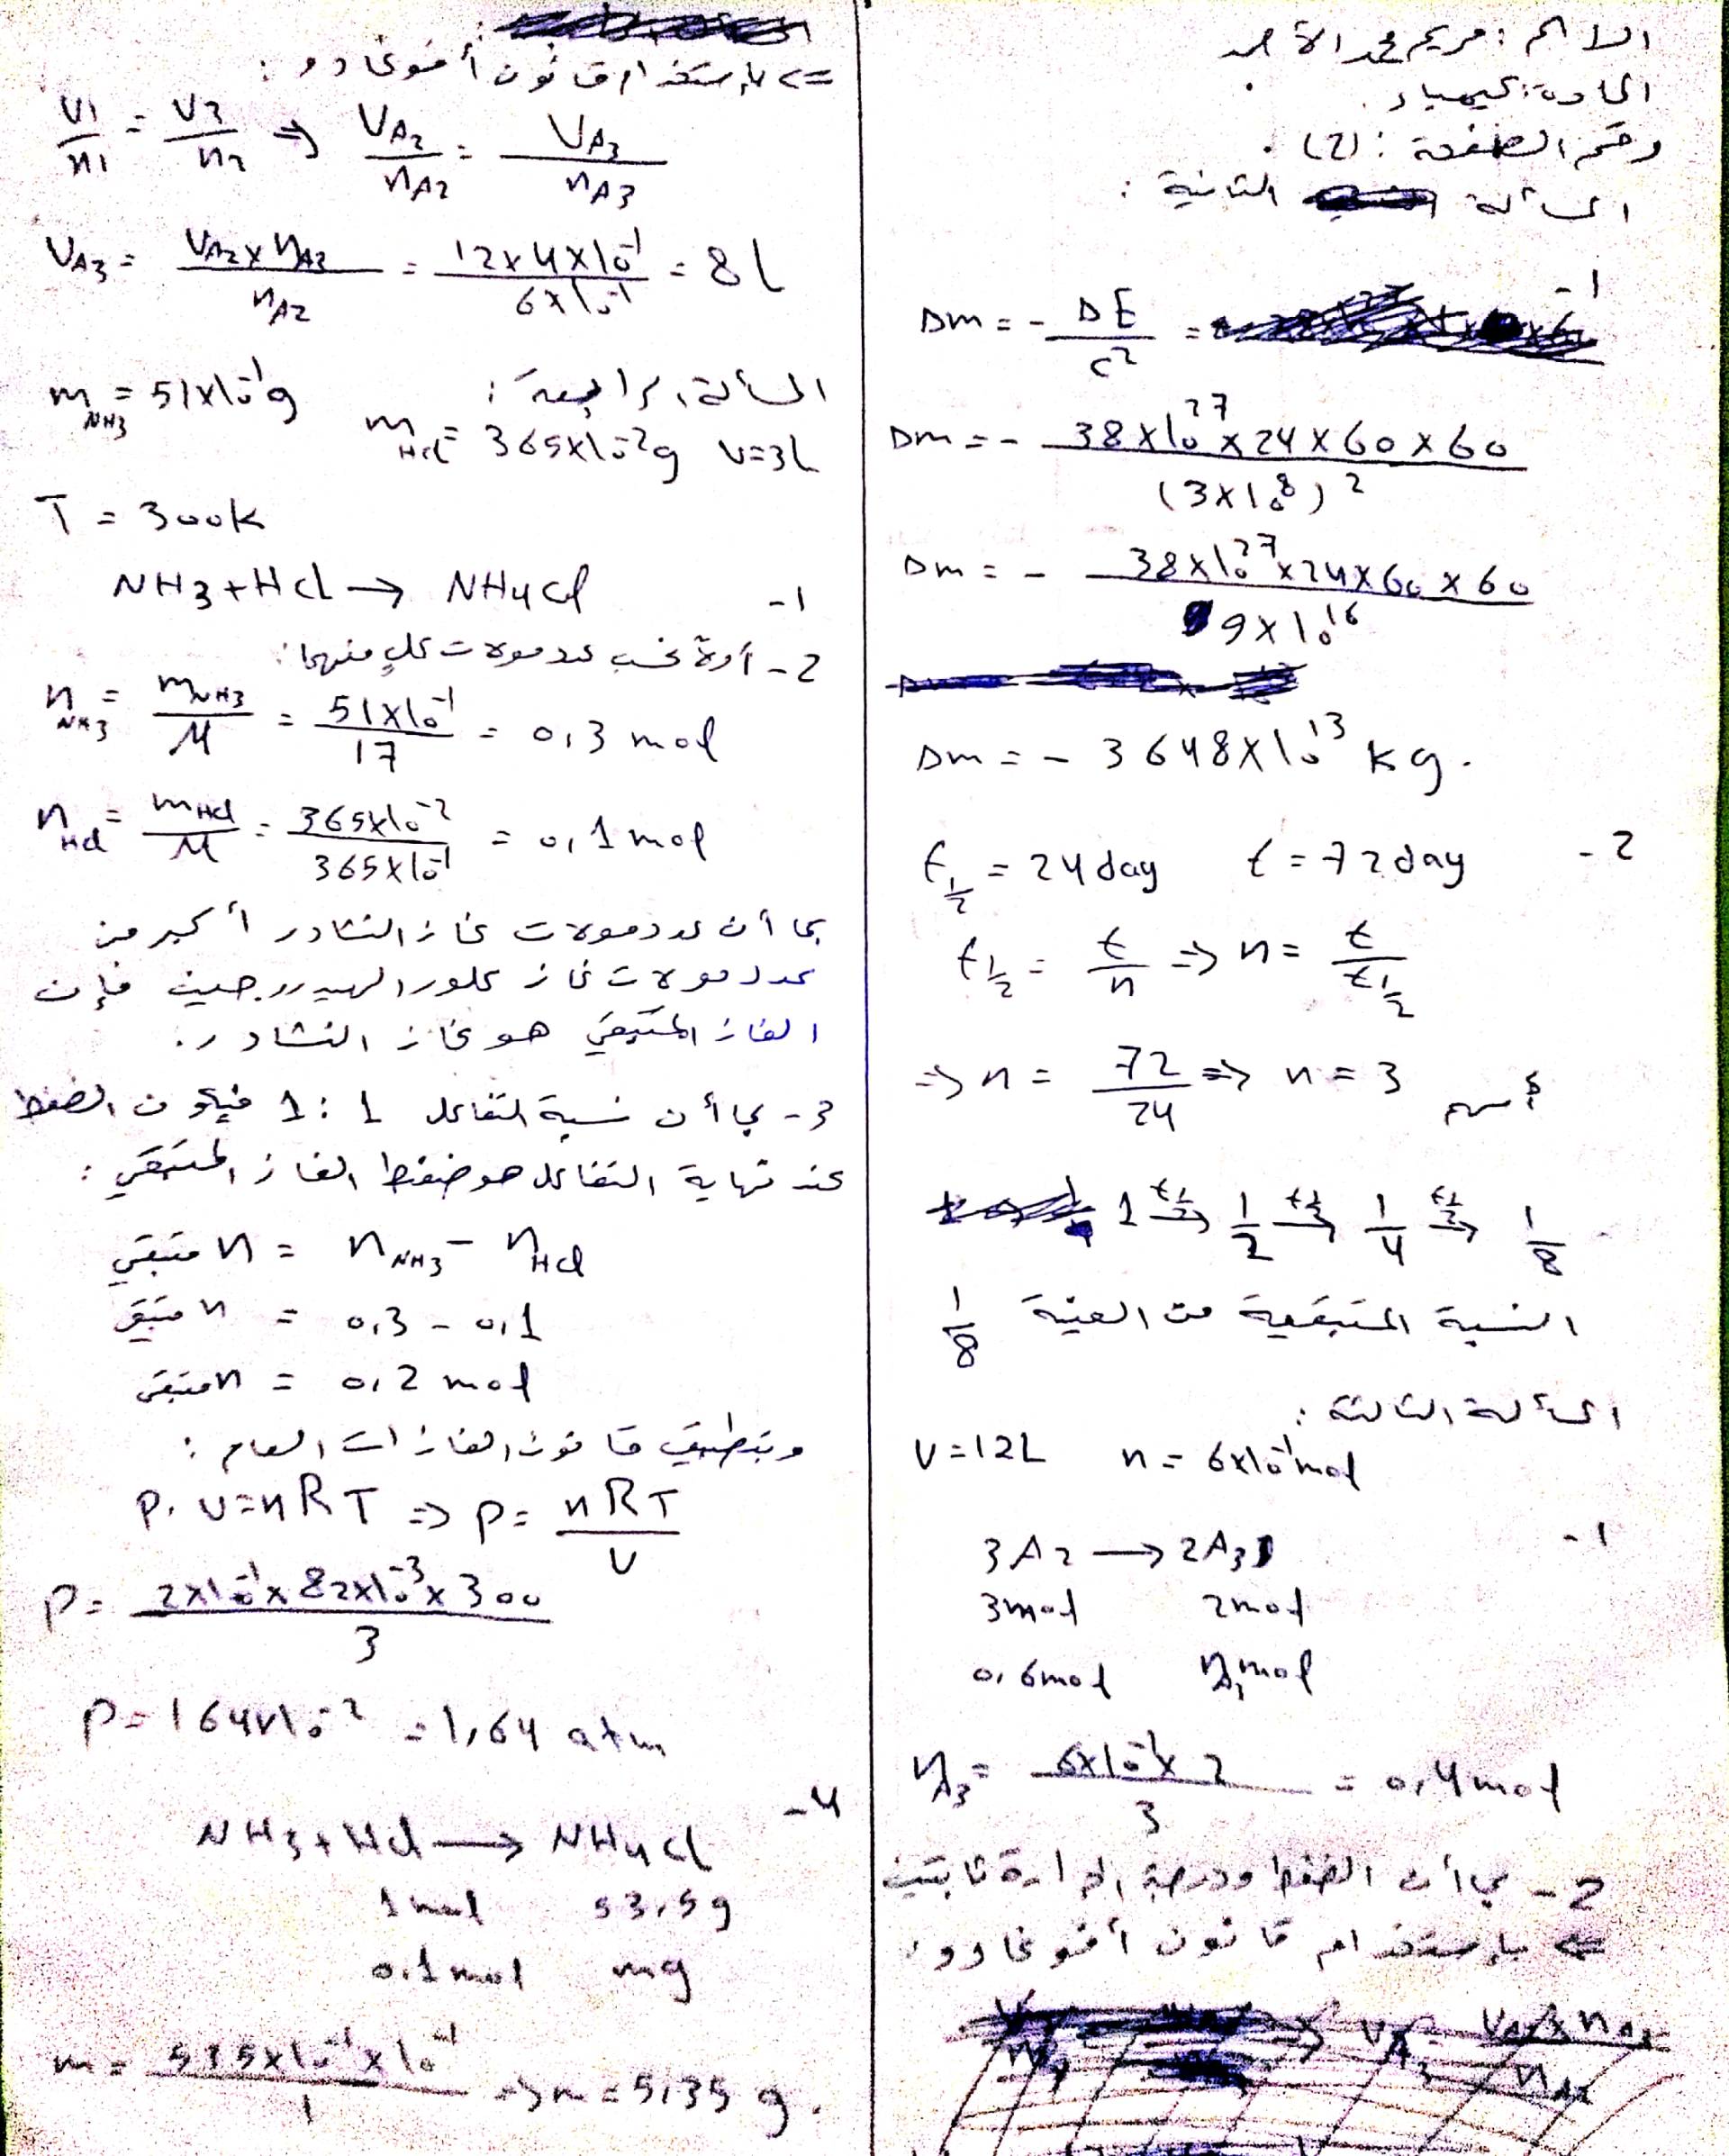 الاسم : مريم محمد الأحمد
المادة : كيمياء .
رقم الصفحة : (2) .
المسألة الثانية :
-1
Δm = - ΔE / c² =
Δm = - 38×10²⁷×24×60×60 / (3×10⁸)²
Δm = - 38×10²⁷×24×60×60 / 9×10¹⁶
Δm = - 3648×10¹³ kg .
-2 t½ = 24 day t = 72 day
t½ = t/n => n = t/t½
=> n = 72/24 => n = 3
1 →(t½) 1/2 →(t½) 1/4 →(t½) 1/8
النسبة المتبقية من العينة 1/8
المسألة الثالثة :
V = 12L n = 6×10⁻¹ mol
-1
3A2 → 2A3
3mol 2mol
0,6mol nA3 mol
nA3 = 6×10⁻¹×2 / 3 = 0,4 mol
2- بما أن الضغط ودرجة الحرارة ثابتين
<= باستخدام قانون أفوغادرو :
=> باستخدام قانون أفوغادرو :
V1/n1 = V2/n2 => VA2/nA2 = VA3/nA3
VA3 = VA2×nA3 / nA2 = 12×4×10⁻¹ / 6×10⁻¹ = 8 l
المسألة الرابعة :
mNH3 = 51×10⁻¹ g mHCl = 365×10⁻² g V=3L
T = 300K
-1 NH3 + HCl → NH4Cl
2- أولاً نحسب عدد مولات كل منهما :
nNH3 = mNH3 / M = 51×10⁻¹ / 17 = 0,3 mol
nHCl = mHCl / M = 365×10⁻² / 365×10⁻¹ = 0,1 mol
بما أن عدد مولات غاز النشادر أكبر من
عدد مولات غاز كلور الهيدروجين فإن
الغاز المتبقي هو غاز النشادر .
3- بما أن نسبة التفاعل 1 : 1 فيكون الضغط
عند نهاية التفاعل هو ضغط الغاز المتبقي :
n متبقي = nNH3 - nHCl
n متبقي = 0,3 - 0,1
n متبقي = 0,2 mol
وبتطبيق قانون الغازات العام :
P. V = nRT => P = nRT / V
P = 2×10⁻¹×82×10⁻³×300 / 3
P = 164×10⁻² = 1,64 atm
-4
NH3 + HCl → NH4Cl
1 mol 53,5 g
0.1 mol mg
m = 535×10⁻¹×10⁻¹ / 1 => m = 5,35 g .